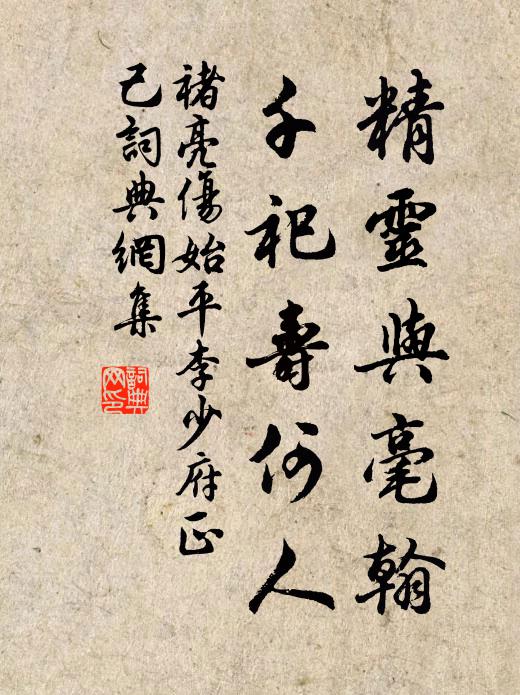 精靈與毫翰
千祀壽何人
褚亮傷始平李少府正
己詞典網集
詞典
网印